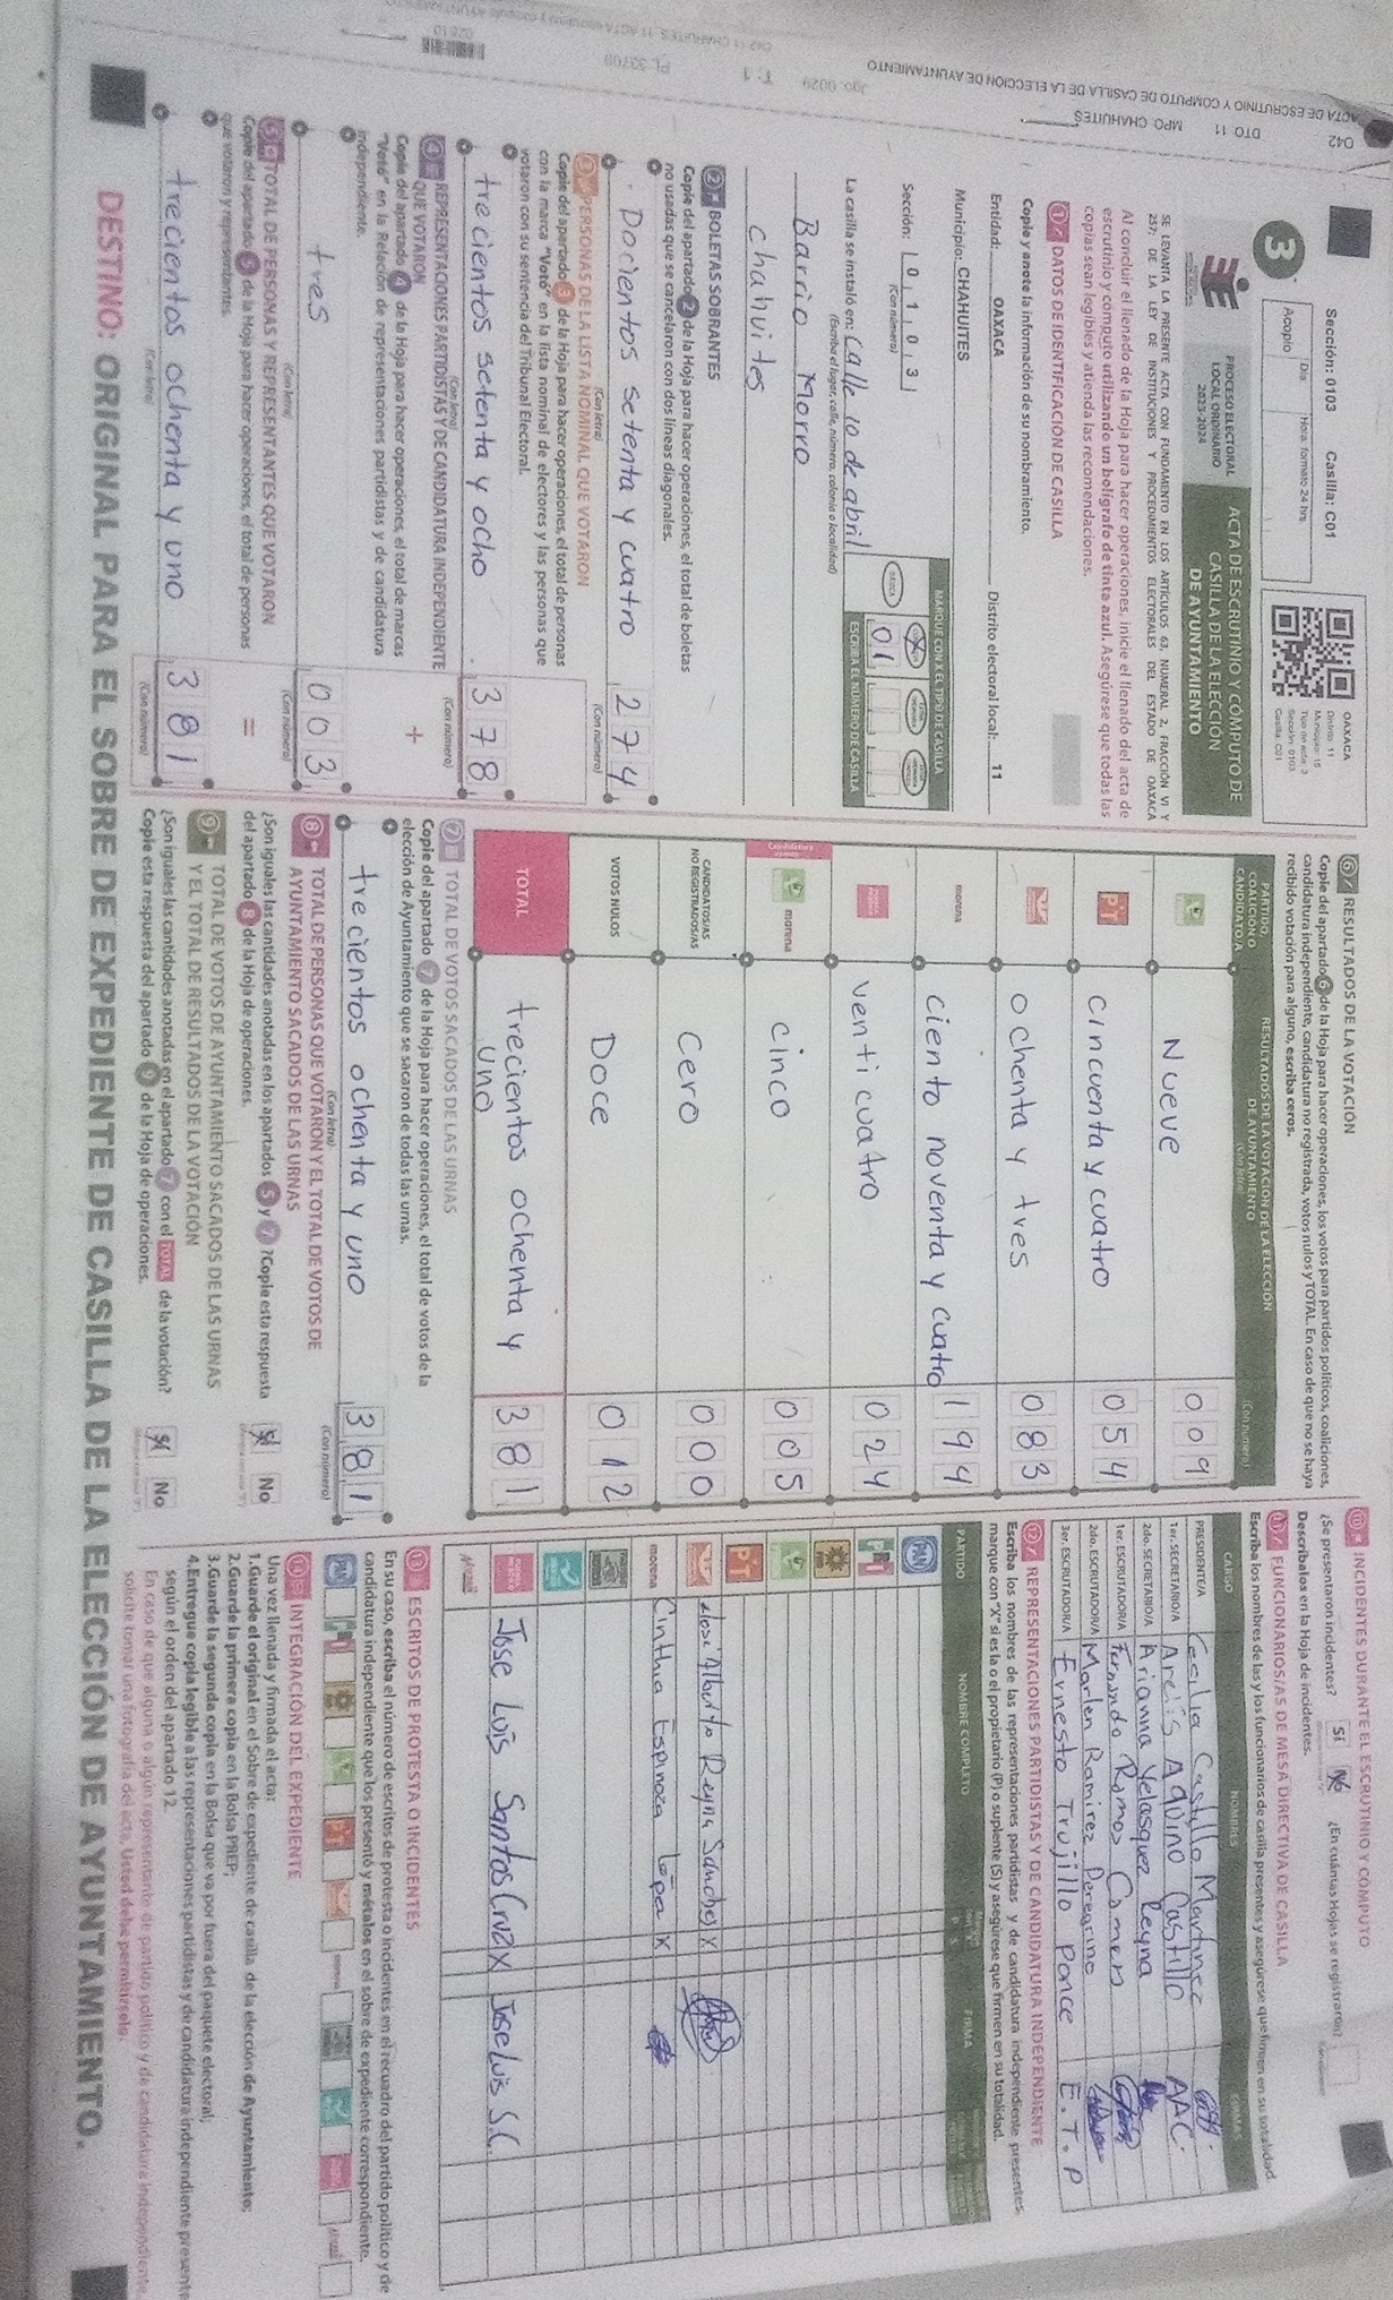 Sección: 0103 Casilla: C01
3
Acopio
Día
Hora: formato 24 hrs
OAXACA
Distrito: 11
Municipio: 15
Tipo de acta: 3
Sección: 0103
Casilla: C01
PROCESO ELECTORAL
LOCAL ORDINARIO
2023-2024
ACTA DE ESCRUTINIO Y CÓMPUTO DE
CASILLA DE LA ELECCIÓN
DE AYUNTAMIENTO
SE LEVANTA LA PRESENTE ACTA CON FUNDAMENTO EN LOS ARTÍCULOS 63, NUMERAL 2, FRACCIÓN VI Y
237; DE LA LEY DE INSTITUCIONES Y PROCEDIMIENTOS ELECTORALES DEL ESTADO DE OAXACA
Al concluir el llenado de la Hoja para hacer operaciones, inicie el llenado del acta de
escrutinio y cómputo utilizando un bolígrafo de tinta azul. Asegúrese que todas las
copias sean legibles y atienda las recomendaciones.
1 DATOS DE IDENTIFICACIÓN DE CASILLA
Copie y anote la información de su nombramiento.
Entidad: OAXACA Distrito electoral local: 11
Municipio: CHAHUITES
Sección: 0 1 0 3
(Con número)
MARQUE CON X EL TIPO DE CASILLA
ESCRIBA EL NÚMERO DE CASILLA
01
La casilla se instaló en: Calle 10 de abril
(Escriba el lugar, calle, número, colonia o localidad)
Barrio Morro
Chahuites
2 BOLETAS SOBRANTES
Copie del apartado 2 de la Hoja para hacer operaciones, el total de boletas
no usadas que se cancelaron con dos líneas diagonales.
Docientos setenta y cuatro 274
(Con letra) (Con número)
3 PERSONAS DE LA LISTA NOMINAL QUE VOTARON
Copie del apartado 3 de la Hoja para hacer operaciones, el total de personas
con la marca "Votó" en la lista nominal de electores y las personas que
votaron con su sentencia del Tribunal Electoral.
trecientos setenta y ocho 378
(Con letra) (Con número)
4 REPRESENTACIONES PARTIDISTAS Y DE CANDIDATURA INDEPENDIENTE
QUE VOTARON
Copie del apartado 4 de la Hoja para hacer operaciones, el total de marcas
"Votó" en la Relación de representaciones partidistas y de candidatura
independiente.
+
tres 003
(Con letra) (Con número)
5 TOTAL DE PERSONAS Y REPRESENTANTES QUE VOTARON
Copie del apartado 5 de la Hoja para hacer operaciones, el total de personas
que votaron y representantes.
=
trecientos ochenta y uno 381
(Con letra) (Con número)
6 RESULTADOS DE LA VOTACIÓN
Copie del apartado 6 de la Hoja para hacer operaciones, los votos para partidos políticos, coaliciones,
candidatura independiente, candidatura no registrada, votos nulos y TOTAL. En caso de que no se haya
recibido votación para alguno, escriba ceros.
PARTIDO,
COALICIÓN O
CANDIDATO/A
RESULTADOS DE LA VOTACIÓN DE LA ELECCIÓN
DE AYUNTAMIENTO
(Con letra)
(Con número)
Nueve 009
PT Cincuenta y cuatro 054
ochenta y tres 083
morena ciento noventa y cuatro 194
venti cuatro 024
morena cinco 005
CANDIDATOS/AS
NO REGISTRADOS/AS Cero 000
VOTOS NULOS Doce 012
TOTAL trecientos ochenta y
uno 381
7 TOTAL DE VOTOS SACADOS DE LAS URNAS
Copie del apartado 7 de la Hoja para hacer operaciones, el total de votos de la
elección de Ayuntamiento que se sacaron de todas las urnas.
trecientos ochenta y uno 381
(Con letra) (Con número)
8 TOTAL DE PERSONAS QUE VOTARON Y EL TOTAL DE VOTOS DE
AYUNTAMIENTO SACADOS DE LAS URNAS
¿Son iguales las cantidades anotadas en los apartados 5 y 7 ?Copie esta respuesta
del apartado 8 de la Hoja de operaciones.
Sí No
9 TOTAL DE VOTOS DE AYUNTAMIENTO SACADOS DE LAS URNAS
Y EL TOTAL DE RESULTADOS DE LA VOTACIÓN
¿Son iguales las cantidades anotadas en el apartado 7 con el TOTAL de la votación?
Copie esta respuesta del apartado 9 de la Hoja de operaciones.
Sí No
10 INCIDENTES DURANTE EL ESCRUTINIO Y CÓMPUTO
¿Se presentaron incidentes? Sí No ¿En cuántas Hojas se registraron?
Descríbalos en la Hoja de incidentes.
11 FUNCIONARIOS/AS DE MESA DIRECTIVA DE CASILLA
Escriba los nombres de las y los funcionarios de casilla presentes y asegúrese que firmen en su totalidad.
CARGO NOMBRES FIRMAS
PRESIDENTE/A Cecilia Castillo Martinez
1er. SECRETARIO/A Areli's Aquino Castillo AAC.
2do. SECRETARIO/A Arianna Velasquez Reyna
1er. ESCRUTADOR/A Fernando Ramos Comen
2do. ESCRUTADOR/A Marlen Ramirez Peregrino
3er. ESCRUTADOR/A Ernesto Trujillo Ponce E.T.P
12 REPRESENTACIONES PARTIDISTAS Y DE CANDIDATURA INDEPENDIENTE
Escriba los nombres de las representaciones partidistas y de candidatura independiente presentes,
marque con "X" si es la o el propietario (P) o suplente (S) y asegúrese que firmen en su totalidad.
PARTIDO NOMBRE COMPLETO FIRMA
PAN
PT
Jose Alberto Reyna Sanchez X
morena Cinthia Espinoza Lopez X
Jose Luis Santos Cruz X Jose Luis S.C.
13 ESCRITOS DE PROTESTA O INCIDENTES
En su caso, escriba el número de escritos de protesta o incidentes en el recuadro del partido político y de
candidatura independiente que los presentó y métalos en el sobre de expediente correspondiente.
14 INTEGRACIÓN DEL EXPEDIENTE
Una vez llenada y firmada el acta:
1.Guarde el original en el Sobre de expediente de casilla de la elección de Ayuntamiento;
2.Guarde la primera copia en la Bolsa PREP;
3.Guarde la segunda copia en la Bolsa que va por fuera del paquete electoral;
4.Entregue copia legible a las representaciones partidistas y de candidatura independiente presentes
según el orden del apartado 12.
En caso de que alguna o algún representante de partido político y de candidatura independiente
solicite tomar una fotografía del acta, Usted debe permitírselo.
DESTINO: ORIGINAL PARA EL SOBRE DE EXPEDIENTE DE CASILLA DE LA ELECCIÓN DE AYUNTAMIENTO.
042 DTO 11 MPO CHAHUITES
ACTA DE ESCRUTINIO Y CÓMPUTO DE CASILLA DE LA ELECCIÓN DE AYUNTAMIENTO